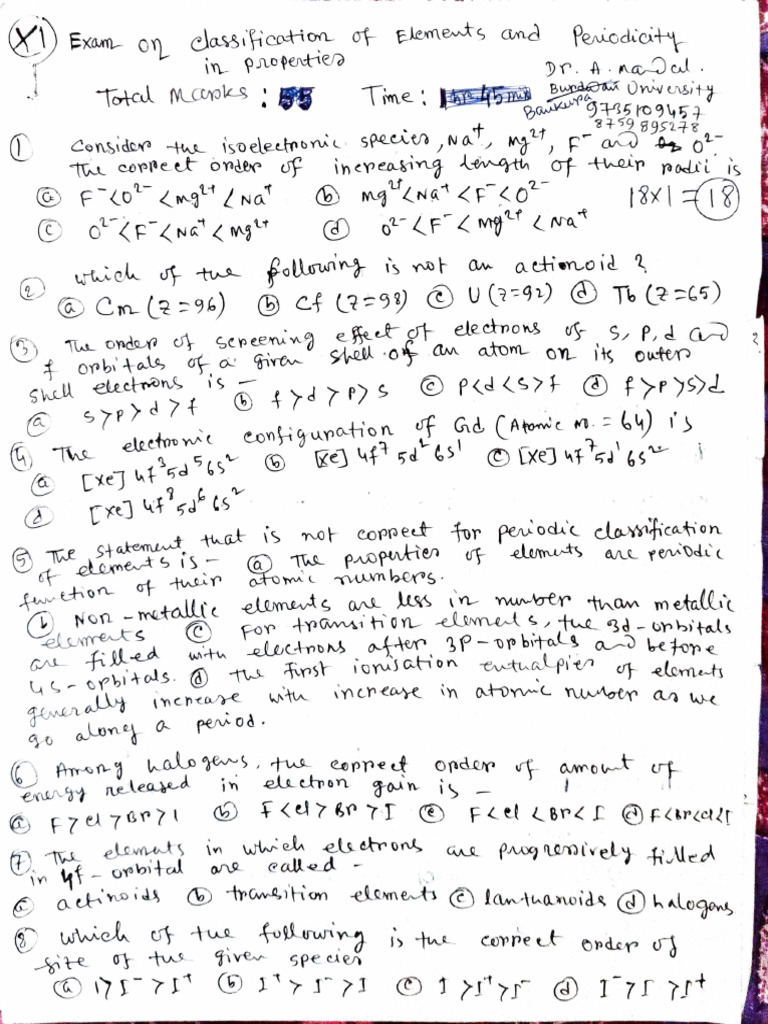 XI Exam on classification of Elements and Periodicity
in properties
Dr. A. Mandal.
Total Marks : 55 Time : 1 hr 45 min Burdwan University
Bankura 9735109457
8759895278
① Consider the isoelectronic species, Na⁺, Mg²⁺, F⁻ and O²⁻
The correct order of increasing length of their radii is
ⓐ F⁻<O²⁻<Mg²⁺<Na⁺ ⓑ Mg²⁺<Na⁺<F⁻<O²⁻ 18×1=18
ⓒ O²⁻<F⁻<Na⁺<Mg²⁺ ⓓ O²⁻<F⁻<Mg²⁺<Na⁺
② which of the following is not an actionoid ?
ⓐ Cm (Z=96) ⓑ Cf (Z=98) ⓒ U (Z=92) ⓓ Tb (Z=65)
③ The order of screening effect of electrons of s, p, d and
f orbitals of a given shell of an atom on its outer
shell electrons is –
ⓐ s>p>d>f ⓑ f>d>p>s ⓒ p<d<s>f ⓓ f>p>s>d
④ The electronic configuration of Gd (Atomic no. = 64) is
ⓐ [Xe] 4f³5d⁵6s² ⓑ [Xe] 4f⁷ 5d² 6s¹ ⓒ [Xe] 4f⁷5d¹6s²
ⓓ [Xe] 4f⁸5d⁶6s²
⑤ The statement that is not correct for periodic classification
of elements is – ⓐ The properties of elements are periodic
function of their atomic numbers.
ⓑ Non-metallic elements are less in number than metallic
elements ⓒ For transition elements, the 3d-orbitals
are filled with electrons after 3p-orbitals and before
4s-orbitals. ⓓ the first ionisation enthalpies of elements
generally increase with increase in atomic number as we
go along a period.
⑥ Among halogens, the correct order of amount of
energy released in electron gain is –
ⓐ F>Cl>Br>I ⓑ F<Cl>Br>I ⓒ F<Cl<Br<I ⓓ F<Br<Cl<I
⑦ The elements in which electrons are progressively filled
in 4f-orbital are called –
ⓐ actinoids ⓑ transition elements ⓒ lanthanoids ⓓ halogens
⑧ which of the following is the correct order of
size of the given species
ⓐ I>I⁻>I⁺ ⓑ I⁺>I⁻>I ⓒ I>I⁺>I⁻ ⓓ I⁻>I>I⁺